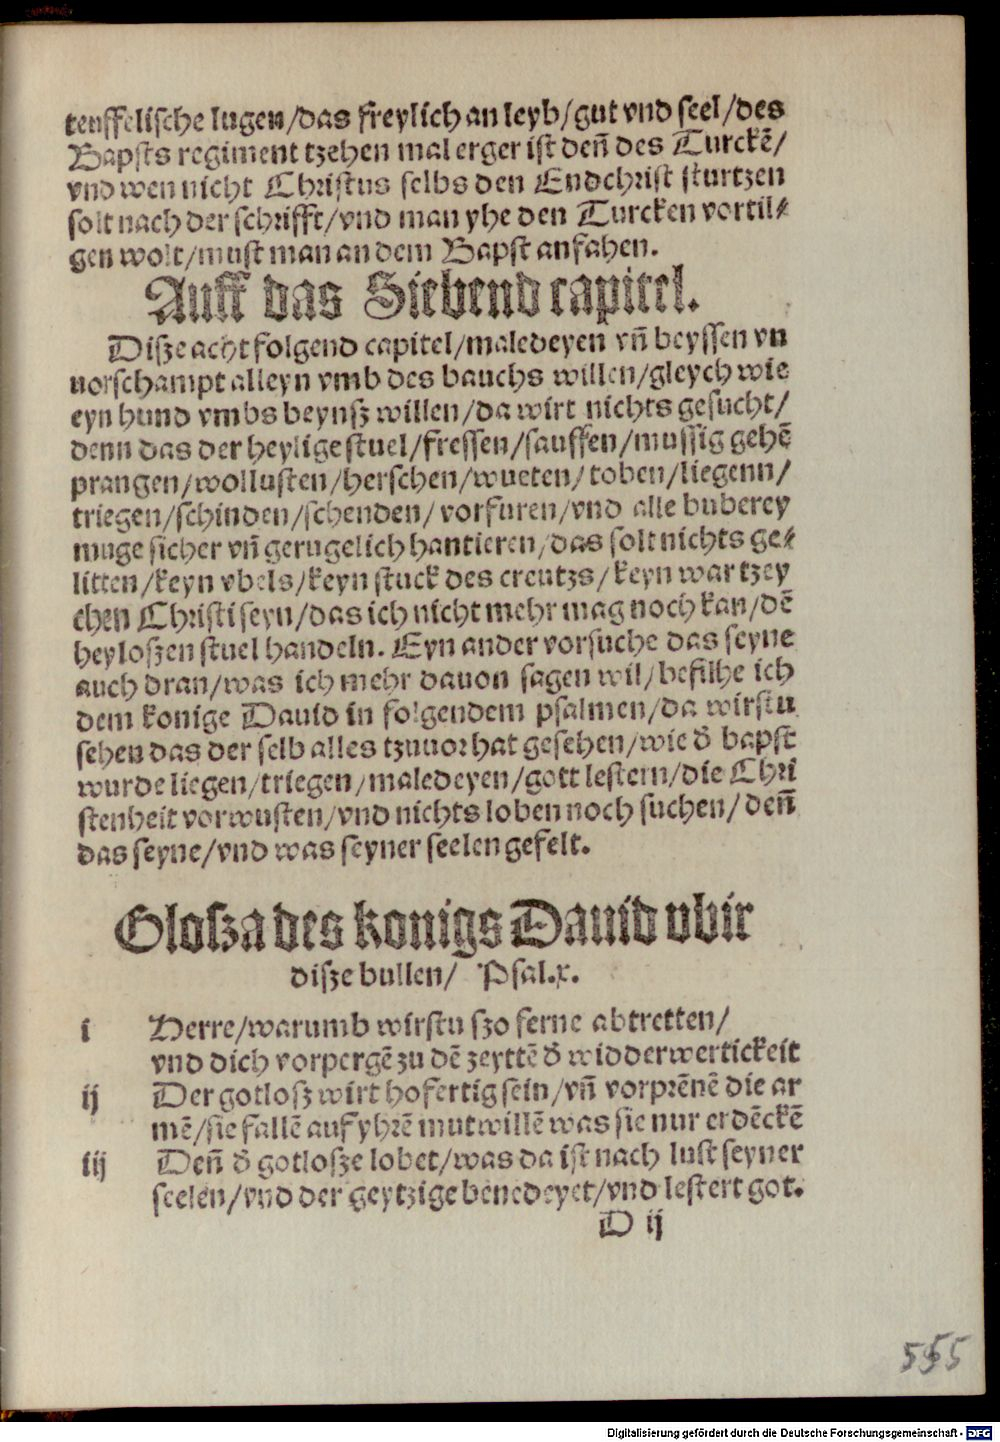 teuffelische lugen/das freylich an leyb/gut vnd seel/des
Bapsts regiment tzehen mal erger ist deñ des Turckẽ/
vnd wen nicht Christus selbs den Endchrist sturtzen
solt nach der schrifft/vnd man yhe den Turcken vortil⸗
gen wolt/must man an dem Bapst anfahen.
Auff das Siebend capitel.
Disze acht folgend capitel/maledeyen vñ beyssen vn
uorschampt alleyn vmb des bauchs willen/gleych wie
eyn hund vmbs beynsz willen/da wirt nichts gesucht/
denn das der heylige stuel/fressen/sauffen/mussig gehẽ
prangen/wollusten/herschen/wueten/toben/liegenn/
triegen/schinden/schenden/vorfuren/vnd alle buberey
muge sicher vñ gerugelich hantieren/das solt nichts ge⸗
litten/keyn vbels/keyn stuck des creutzs/keyn war tzey
chen Christi seyn/das ich nicht mehr mag noch kan/dẽ
heyloszen stuel handeln. Eyn ander vorsuche das seyne
auch dran/was ich mehr dauon sagen wil/befilhe ich
dem konige Dauid in folgendem psalmen/da wirstu
sehen das der selb alles tzuuor hat gesehen/wie d̃ bapst
wurde liegen/triegen/maledeyen/gott lestern/die Chri
stenheit vorwusten/vnd nichts loben noch suchen/deñ
das seyne/vnd was seyner seelen gefelt.
Glosza des konigs Dauid vbir
disze bullen/ Psal.x.
i Herre/warumb wirstu szo ferne abtretten/
vnd dich vorpergẽ zu dẽ zeyttẽ d̃ widderwertickeit
ij Der gotlosz wirt hofertig sein/vñ vorprẽnẽ die ar
mẽ/sie fallẽ auf yhrẽ mutwillẽ was sie nur erdẽckẽ
iij Deñ d̃ gotlosze lobet/was da ist nach lust seyner
seelen/vnd der geytzige benedeyet/vnd lestert got.
D ij
555
Digitalisierung gefördert durch die Deutsche Forschungsgemeinschaft - DFG